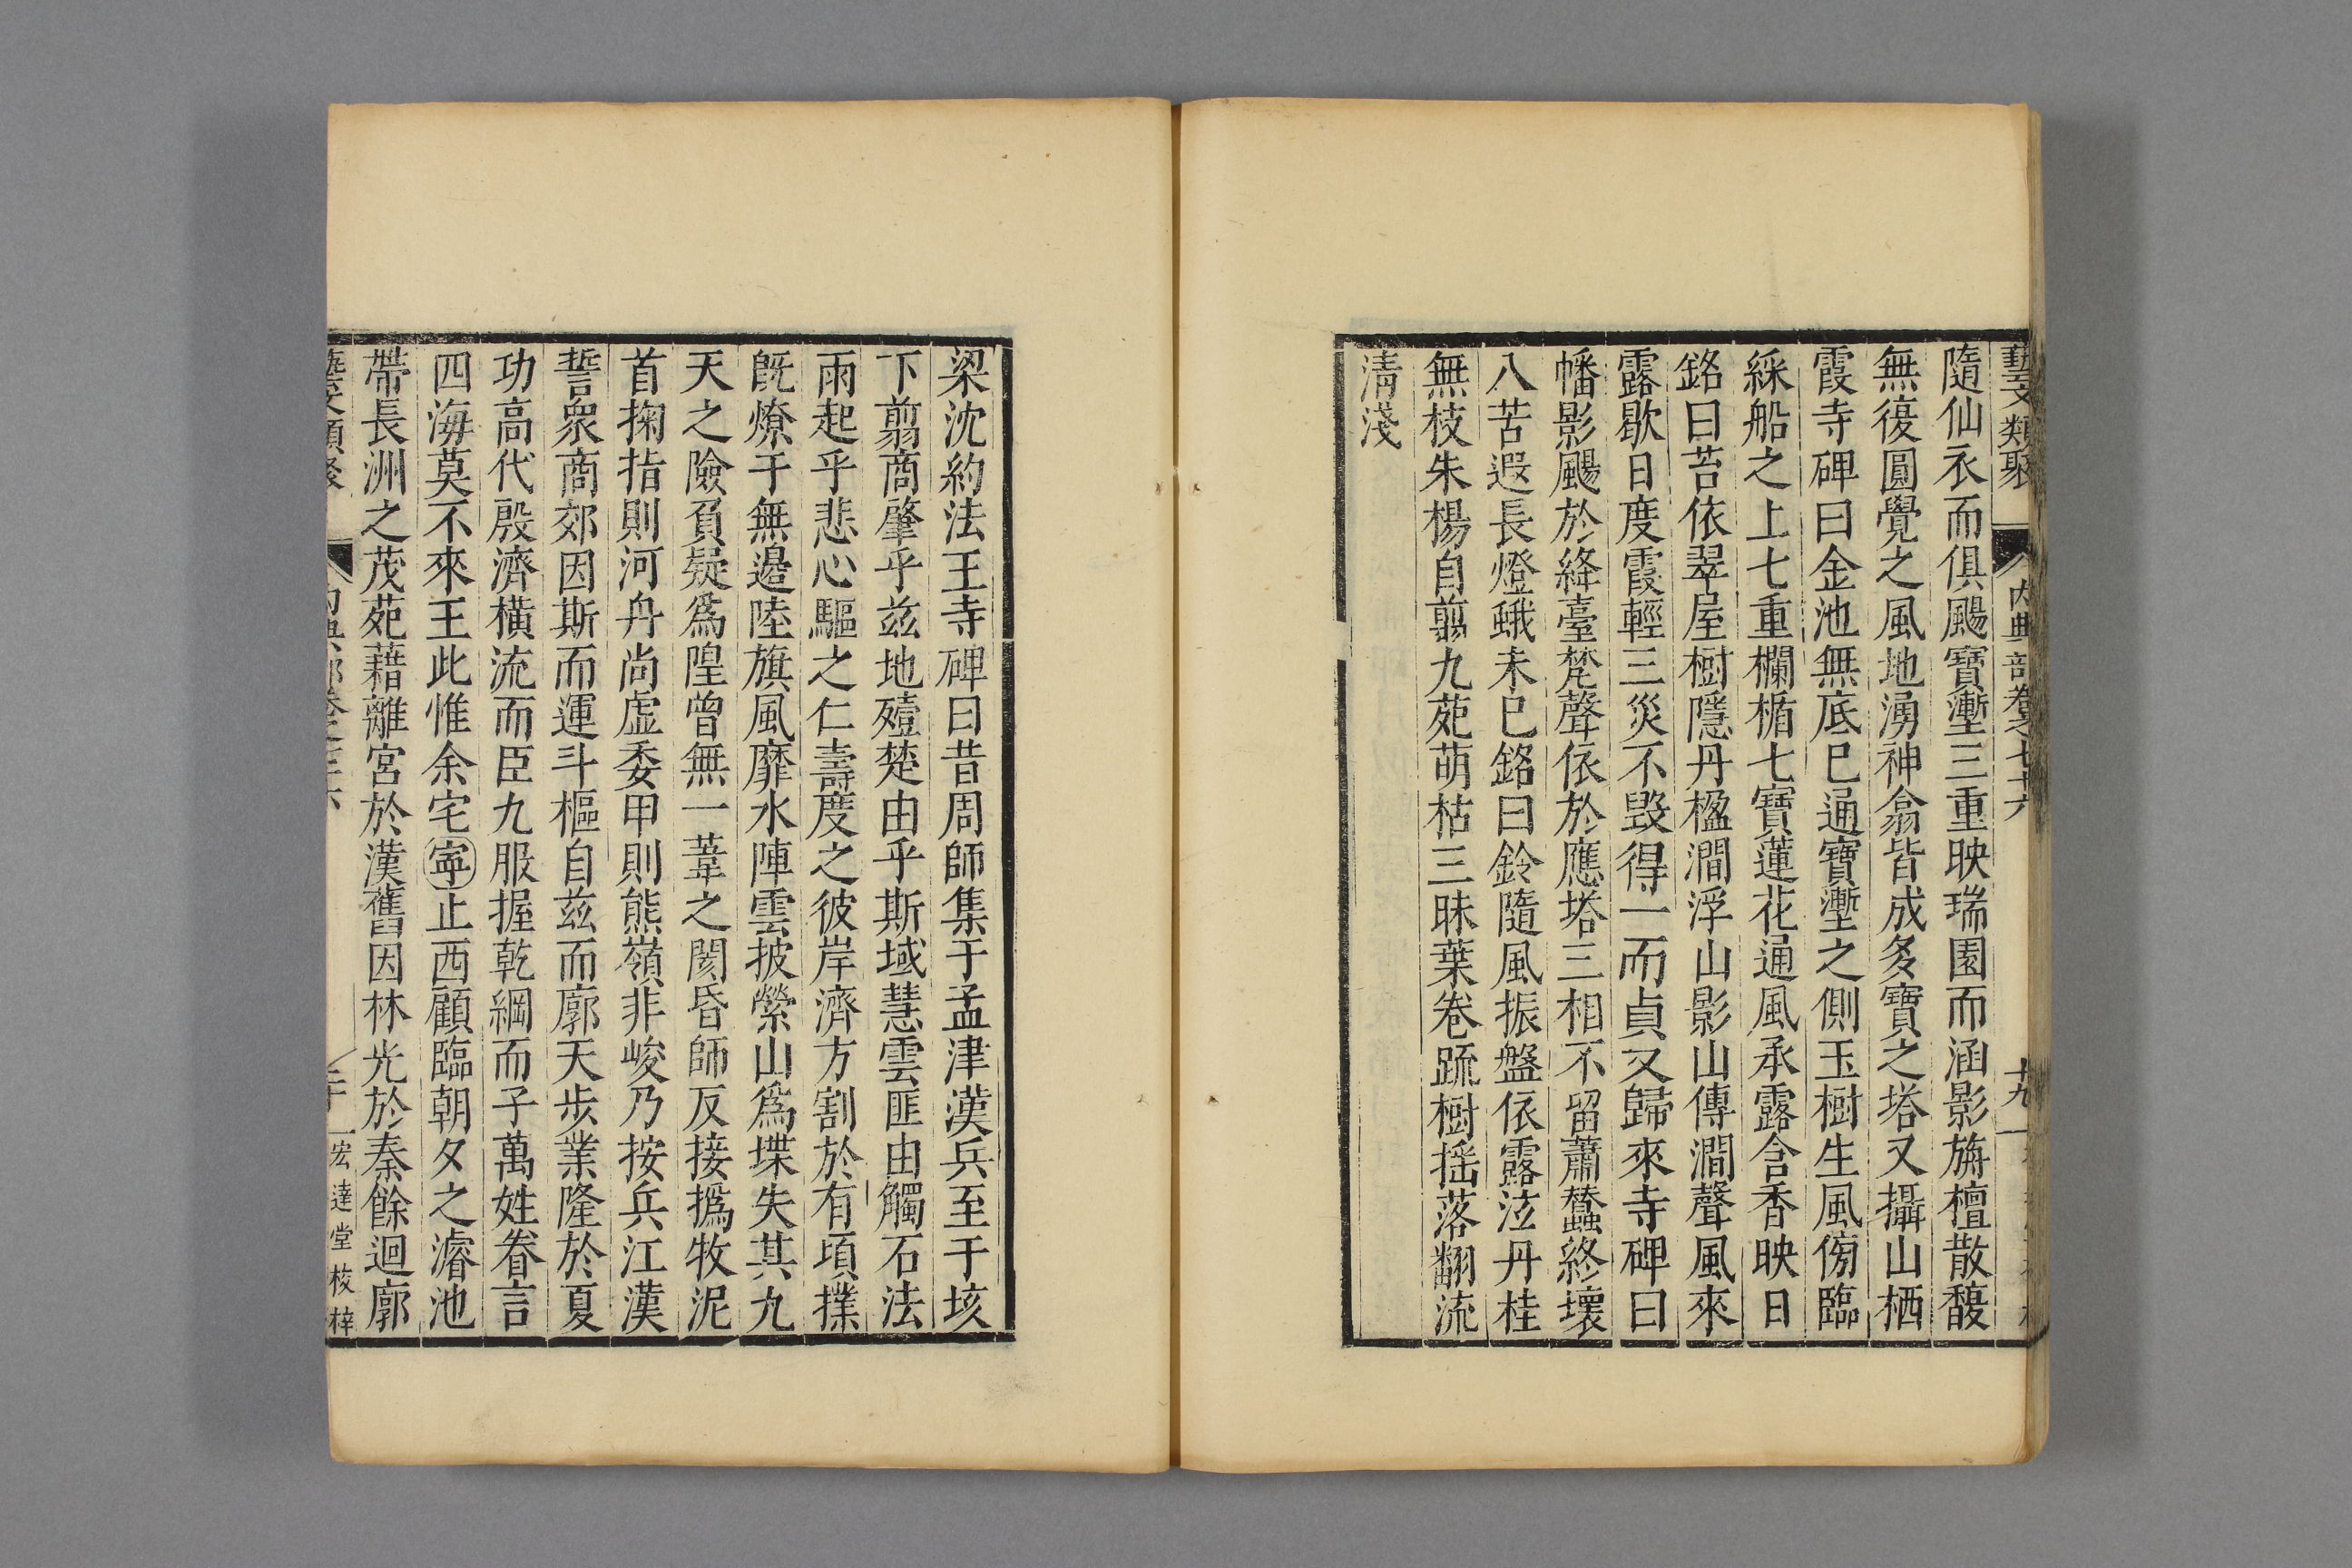 藝文類聚 內典部卷之七十六 十九
隨仙衣而俱颺寶壍三重映瑞園而涵影旃檀散馥
無復圓覺之風地湧神翕皆成多寶之塔又攝山栖
霞寺碑曰金池無底已通寶壍之側玉樹生風傍臨
綵船之上七重欄楯七寶蓮花通風承露含香映日
銘曰苔依翠屋樹隱丹楹澗浮山影山傳澗聲風來
露歇日度霞輕三災不毀得一而貞又歸來寺碑曰
幡影颺於絳臺梵聲依於應塔三相不留蕭蠶終壞
八苦遐長燈蛾未已銘曰鈴隨風振盤依露泫丹桂
無枝朱楊自翦九苑萌枯三昧葉卷疏樹搖落翻流
淸淺
梁沈約法王寺碑曰昔周師集于孟津漢兵至于垓
下翦商肇乎茲地殪楚由乎斯域慧雲匪由觸石法
雨起乎悲心驅之仁壽度之彼岸濟方割於有項撲
旣燎于無邊陸旗風靡水陣雲披縈山爲堞失其九
天之險負疑爲隍曾無一葦之閡昏師反接撝牧泥
首掬指則河舟尚虛委甲則熊嶺非峻乃按兵江漢
誓衆商郊因斯而運斗樞自茲而廓天步業隆於夏
功高代殷濟橫流而臣九服握乾綱而子萬姓眷言
四海莫不來王此惟余宅寍止西顧臨朝夕之濬池
帶長洲之茂苑藉離宮於漢舊因林光於秦餘迴廓
藝文類聚 內典部卷之七十六 二十 宏達堂校梓